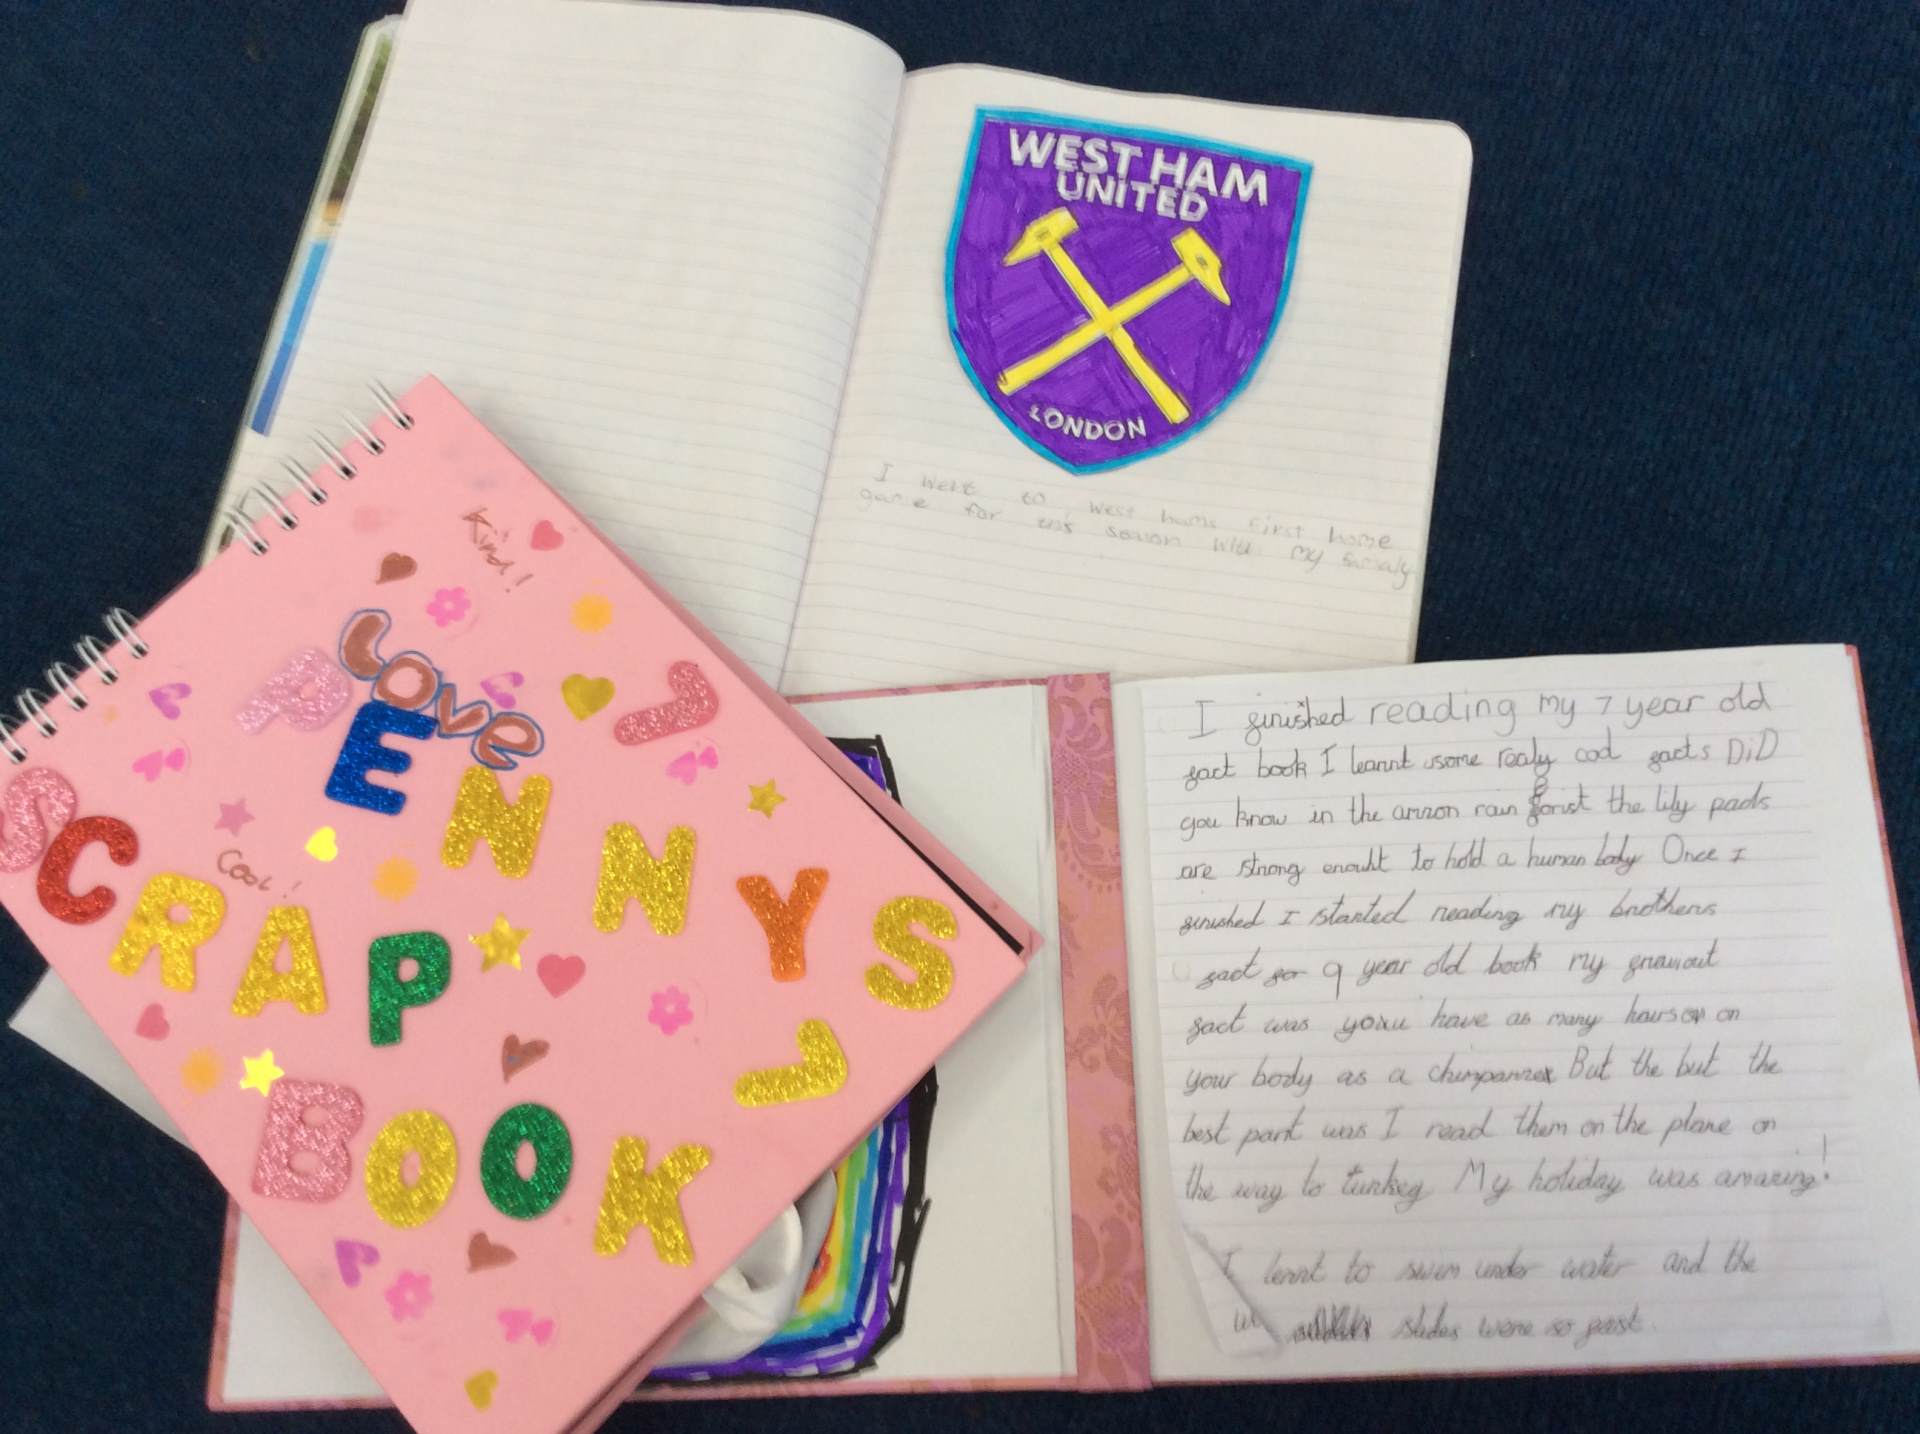 WEST HAM
UNITED
LONDON
I went to west hams first home
game for this season with my famaly
Kind!
Love
PENNYS
Cool!
SCRAP
BOOK
I finished reading my 7 year old
fact book I learnt some realy cool facts DiD
you know in the amzon rain forist the lily pads
are strong enouht to hold a human body Once I
finished I started reading my brothers
fact for 9 year old book my
fact was you have as many hairs on
your body as a chimpanzex But the but the
best part was I read them on the plane on
the way to turkey My holiday was amazing!
I lernt to swim under water and the
slides were so fast.